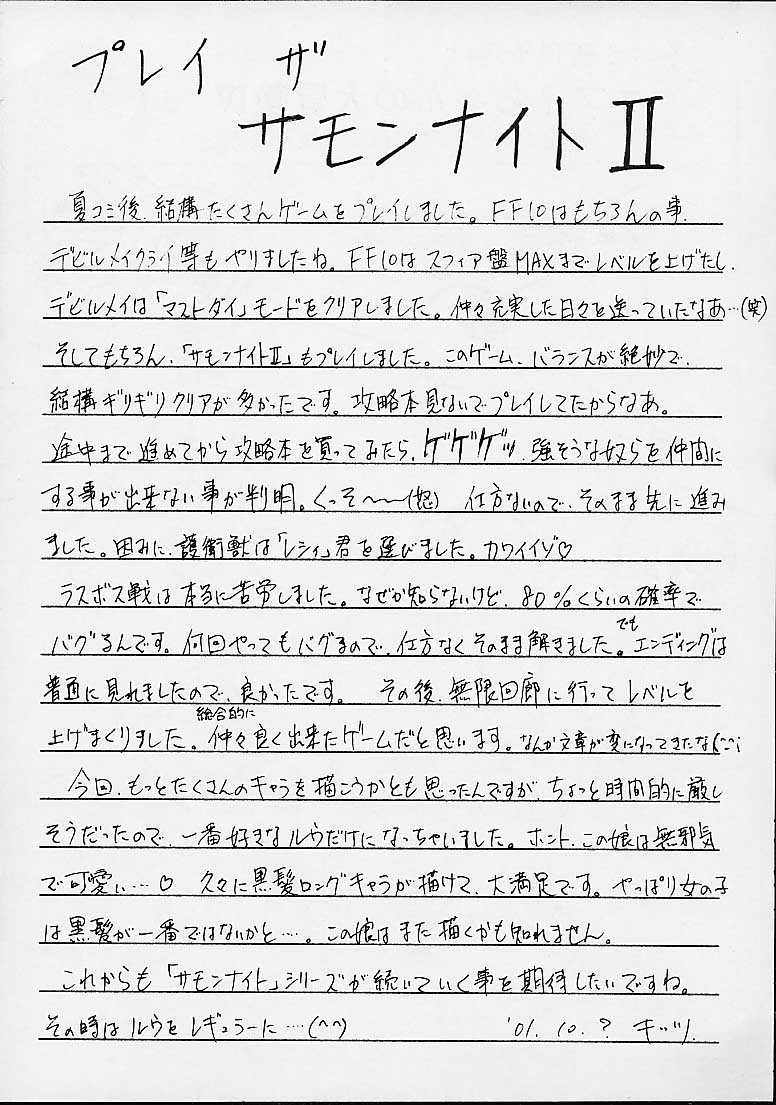 プレイ ザ
サモンナイトⅡ
夏コミ後、結構たくさんゲームをプレイしました。FF10はもちろんの事、
デビルメイクライ等もやりましたね。FF10はスフィア盤MAXまでレベルを上げたし、
デビルメイは「マストダイ」モードをクリアしました。仲々充実した日々を送っていたなあ…(笑)
そしてもちろん、「サモンナイトⅡ」もプレイしました。このゲーム、バランスが絶妙で、
結構ギリギリクリアが多かったです。攻略本見ないでプレイしてたからなあ。
途中まで進めてから攻略本を買ってみたら、ゲゲゲッ、強そうな奴らを仲間に
する事が出来ない事が判明。くっそ〜〜(怒) 仕方ないので、そのまま先に進み
ました。因みに、護衛獣は「レシィ」君を選びました。カワイイゾ♡
ラスボス戦は本当に苦労しました。なぜか知らないけど、80%くらいの確率で
バグるんです。何回やってもバグるので、仕方なくそのまま解きました。でもエンディングは
普通に見れましたので、良かったです。 その後、無限回廊に行ってレベルを
上げまくりました。総合的に仲々良く出来たゲームだと思います。なんか文章が変になってきたな(^^;
今回、もっとたくさんのキャラを描こうかとも思ったんですが、ちょっと時間的に厳し
そうだったので、一番好きなルウだけになっちゃいました。ホント、この娘は無邪気
で可愛い…♡ 久々に黒髪ロングキャラが描けて、大満足です。やっぱり女の子
は黒髪が一番ではないかと…。この娘はまた描くかも知れません。
これからも「サモンナイト」シリーズが続いていく事を期待したいですね。
その時はルウをレギュラーに…(^^) '01.10.? キッツ